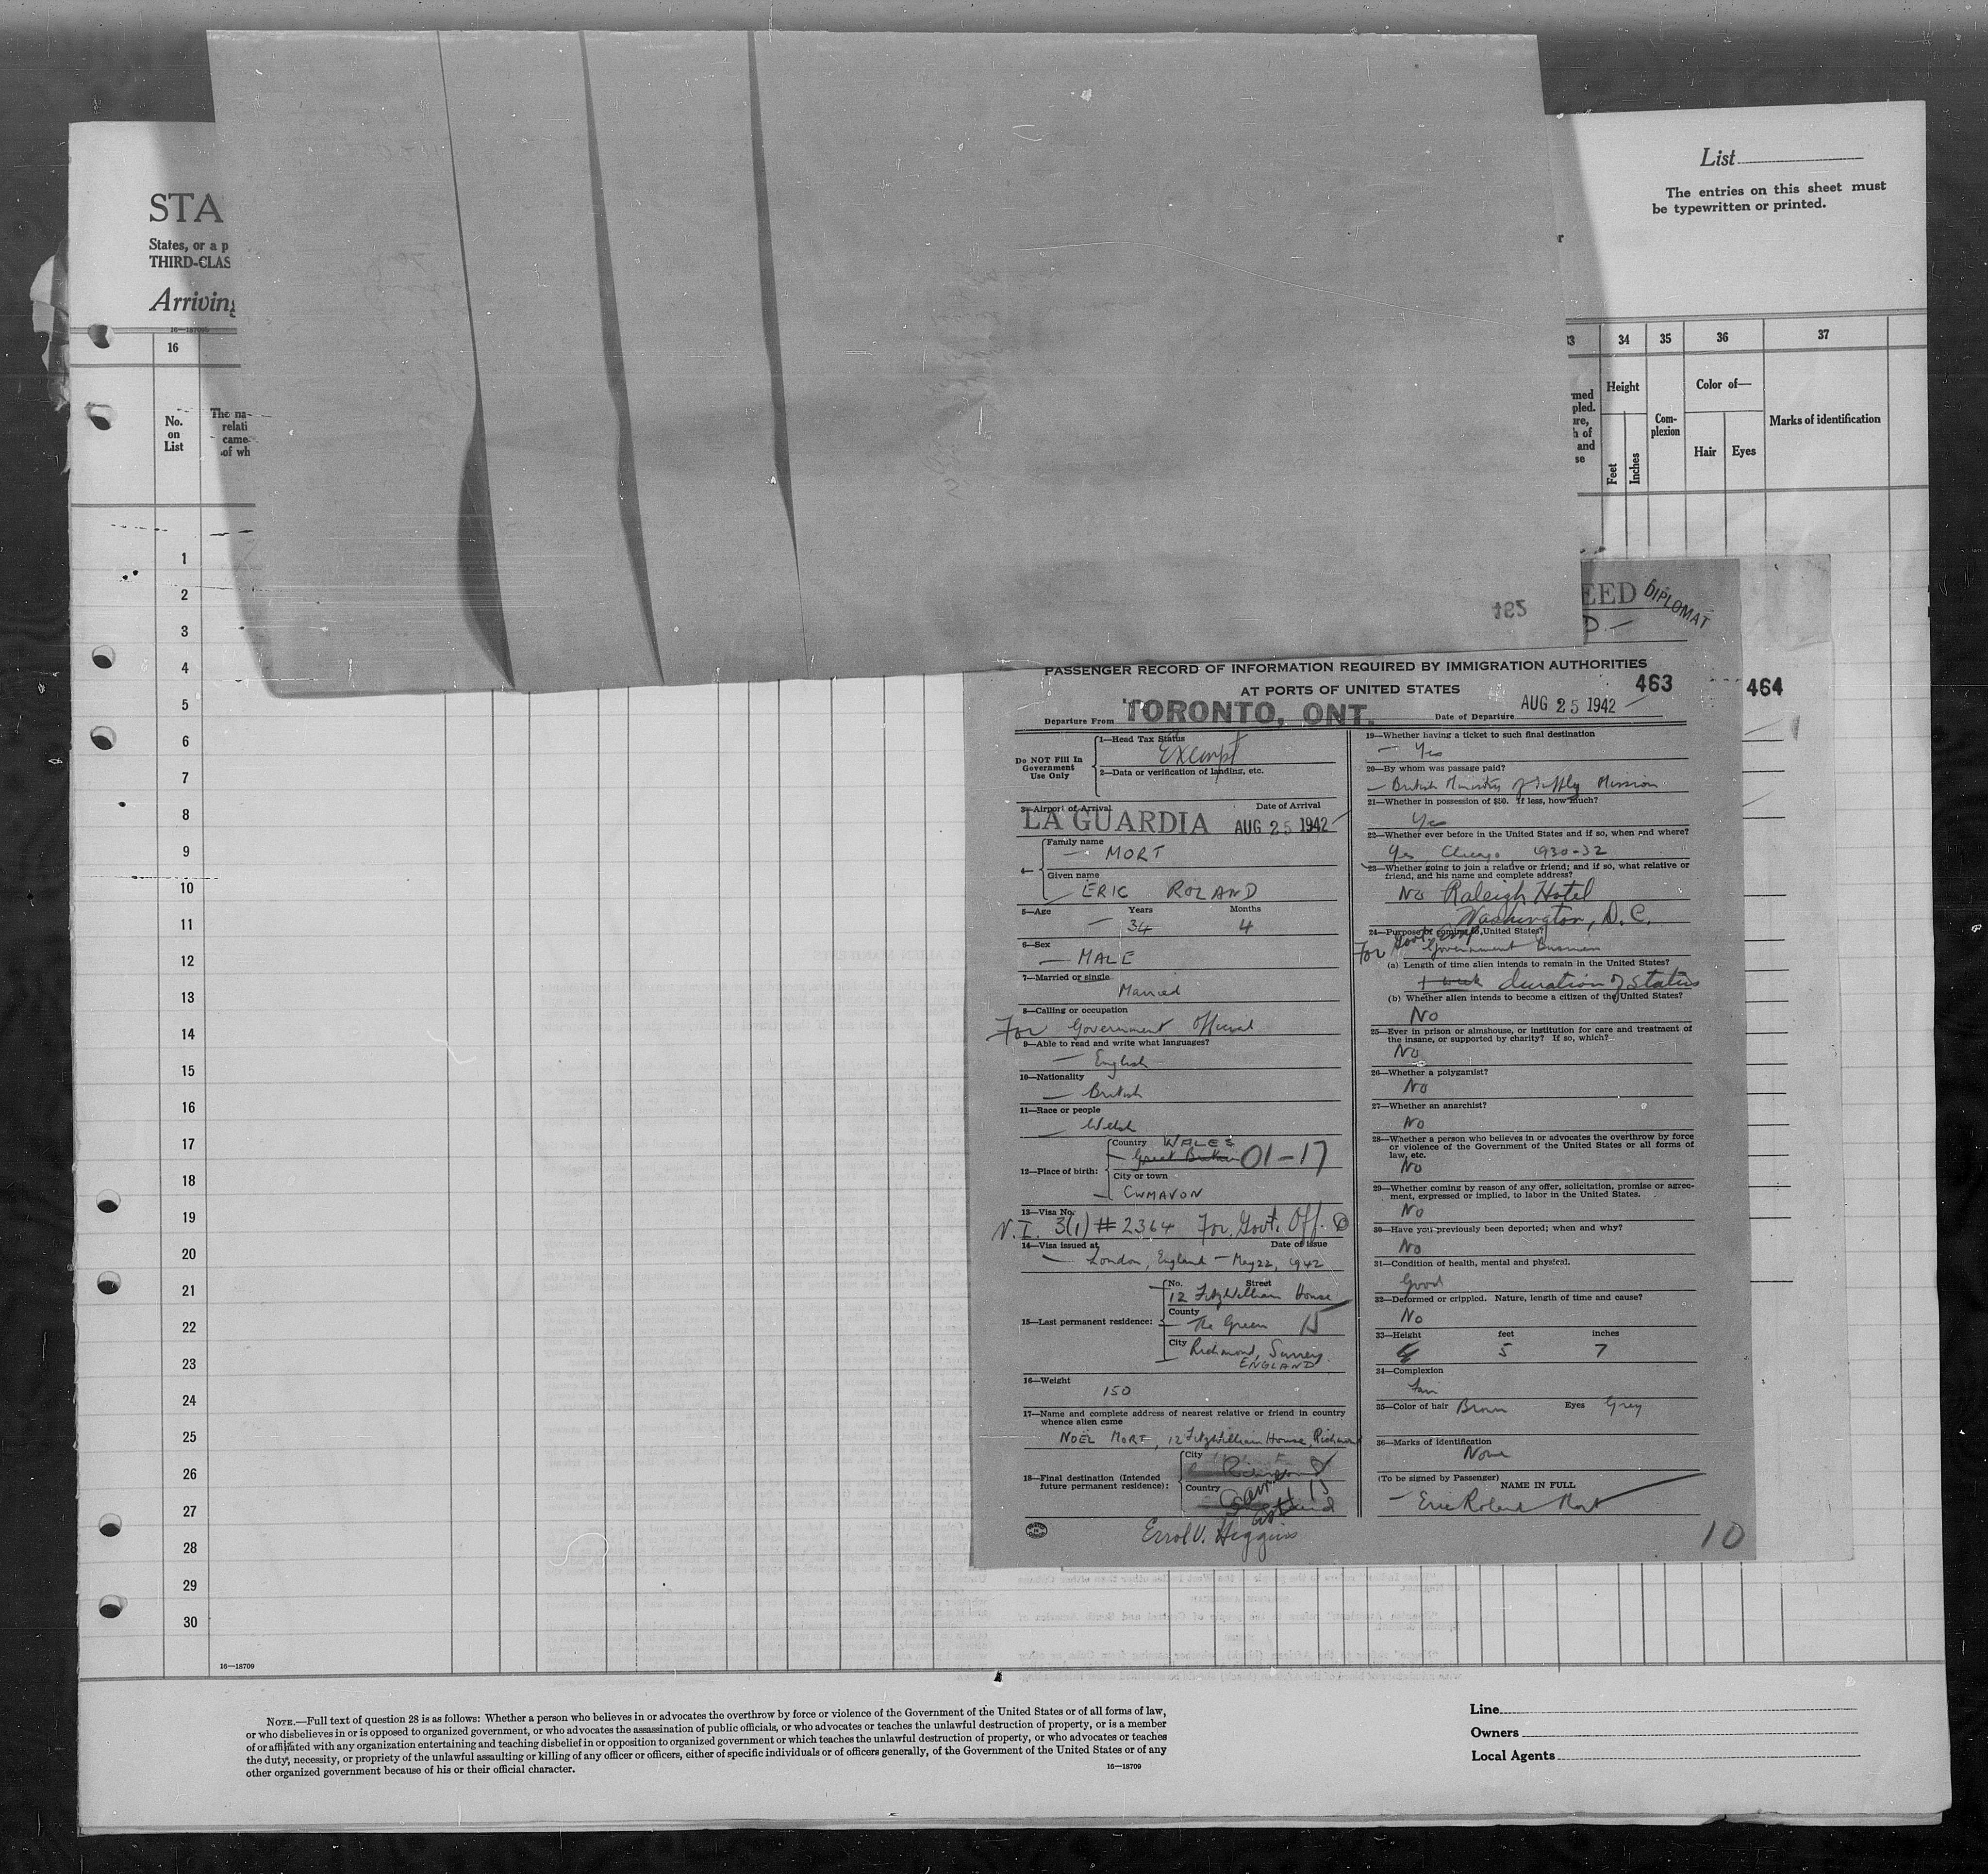 List
The entries on this sheet must
be typewritten or printed.
STA
States, or a p
THIRD-CLAS
Arriving
16
34
35
36
37
No.
on
List
The na-
relati
came
of wh
med
pled.
ure,
h of
and
se
Height
Feet
Inches
Com-
plexion
Color of—
Hair
Eyes
Marks of identification
1
2
3
4
5
6
7
8
9
10
11
12
13
14
15
16
17
18
19
20
21
22
23
24
25
26
27
28
29
30
16—18709
462
EED DIPLOMAT
D.—
PASSENGER RECORD OF INFORMATION REQUIRED BY IMMIGRATION AUTHORITIES
AT PORTS OF UNITED STATES
463
464
Departure From TORONTO, ONT. Date of Departure AUG 25 1942
Do NOT Fill In
Government
Use Only
1—Head Tax Status
Exempt
2—Data or verification of landing, etc.
3—Airport of Arrival Date of Arrival
LA GUARDIA AUG 25 1942
4—
Family name
— MORT
Given name
ERIC ROLAND
5—Age Years Months
— 34 4
6—Sex
— MALE
7—Married or single
Married
8—Calling or occupation
For Government Official
9—Able to read and write what languages?
— English
10—Nationality
— British
11—Race or people
— Welsh
12—Place of birth:
Country WALES
Great Britain 01-17
City or town
— CWMAVON
13—Visa No.
N.I. 3(1) #2364 For. Govt. Off.
14—Visa issued at Date of issue
— London, England — May 22, 1942
15—Last permanent residence:
No. Street
12 FitzWilliam House
County
— The Green 15
City Richmond, Surrey.
ENGLAND
16—Weight
150
17—Name and complete address of nearest relative or friend in country
whence alien came
NOËL MORT, 12 FitzWilliam House, Richmond
18—Final destination (Intended
future permanent residence):
City
Richmond
Country
Errol V. Higgins
19—Whether having a ticket to such final destination
— Yes
20—By whom was passage paid?
— British Ministry of Supply Mission
21—Whether in possession of $50. If less, how much?
Yes
22—Whether ever before in the United States and if so, when and where?
Yes Chicago 1930-32
23—Whether going to join a relative or friend; and if so, what relative or
friend, and his name and complete address?
No Raleigh Hotel
Washington, D.C.
24—Purpose of coming to United States?
For Govt.
Government Business
(a) Length of time alien intends to remain in the United States?
1 week duration of status
(b) Whether alien intends to become a citizen of the United States?
No
25—Ever in prison or almshouse, or institution for care and treatment of
the insane, or supported by charity? If so, which?
No
26—Whether a polygamist?
No
27—Whether an anarchist?
No
28—Whether a person who believes in or advocates the overthrow by force
or violence of the Government of the United States or all forms of
law, etc.
No
29—Whether coming by reason of any offer, solicitation, promise or agree-
ment, expressed or implied, to labor in the United States.
No
30—Have you previously been deported; when and why?
No
31—Condition of health, mental and physical.
Good
32—Deformed or crippled. Nature, length of time and cause?
No
33—Height feet inches
5 7
34—Complexion
Fair
35—Color of hair Brown Eyes Grey
36—Marks of identification
None
(To be signed by Passenger)
NAME IN FULL
— Eric Roland Mort
10
NOTE.—Full text of question 28 is as follows: Whether a person who believes in or advocates the overthrow by force or violence of the Government of the United States or of all forms of law,
or who disbelieves in or is opposed to organized government, or who advocates the assassination of public officials, or who advocates or teaches the unlawful destruction of property, or is a member
of or affiliated with any organization entertaining and teaching disbelief in or opposition to organized government or which teaches the unlawful destruction of property, or who advocates or teaches
the duty, necessity, or propriety of the unlawful assaulting or killing of any officer or officers, either of specific individuals or of officers generally, of the Government of the United States or of any
other organized government because of his or their official character.
16—18709
Line
Owners
Local Agents